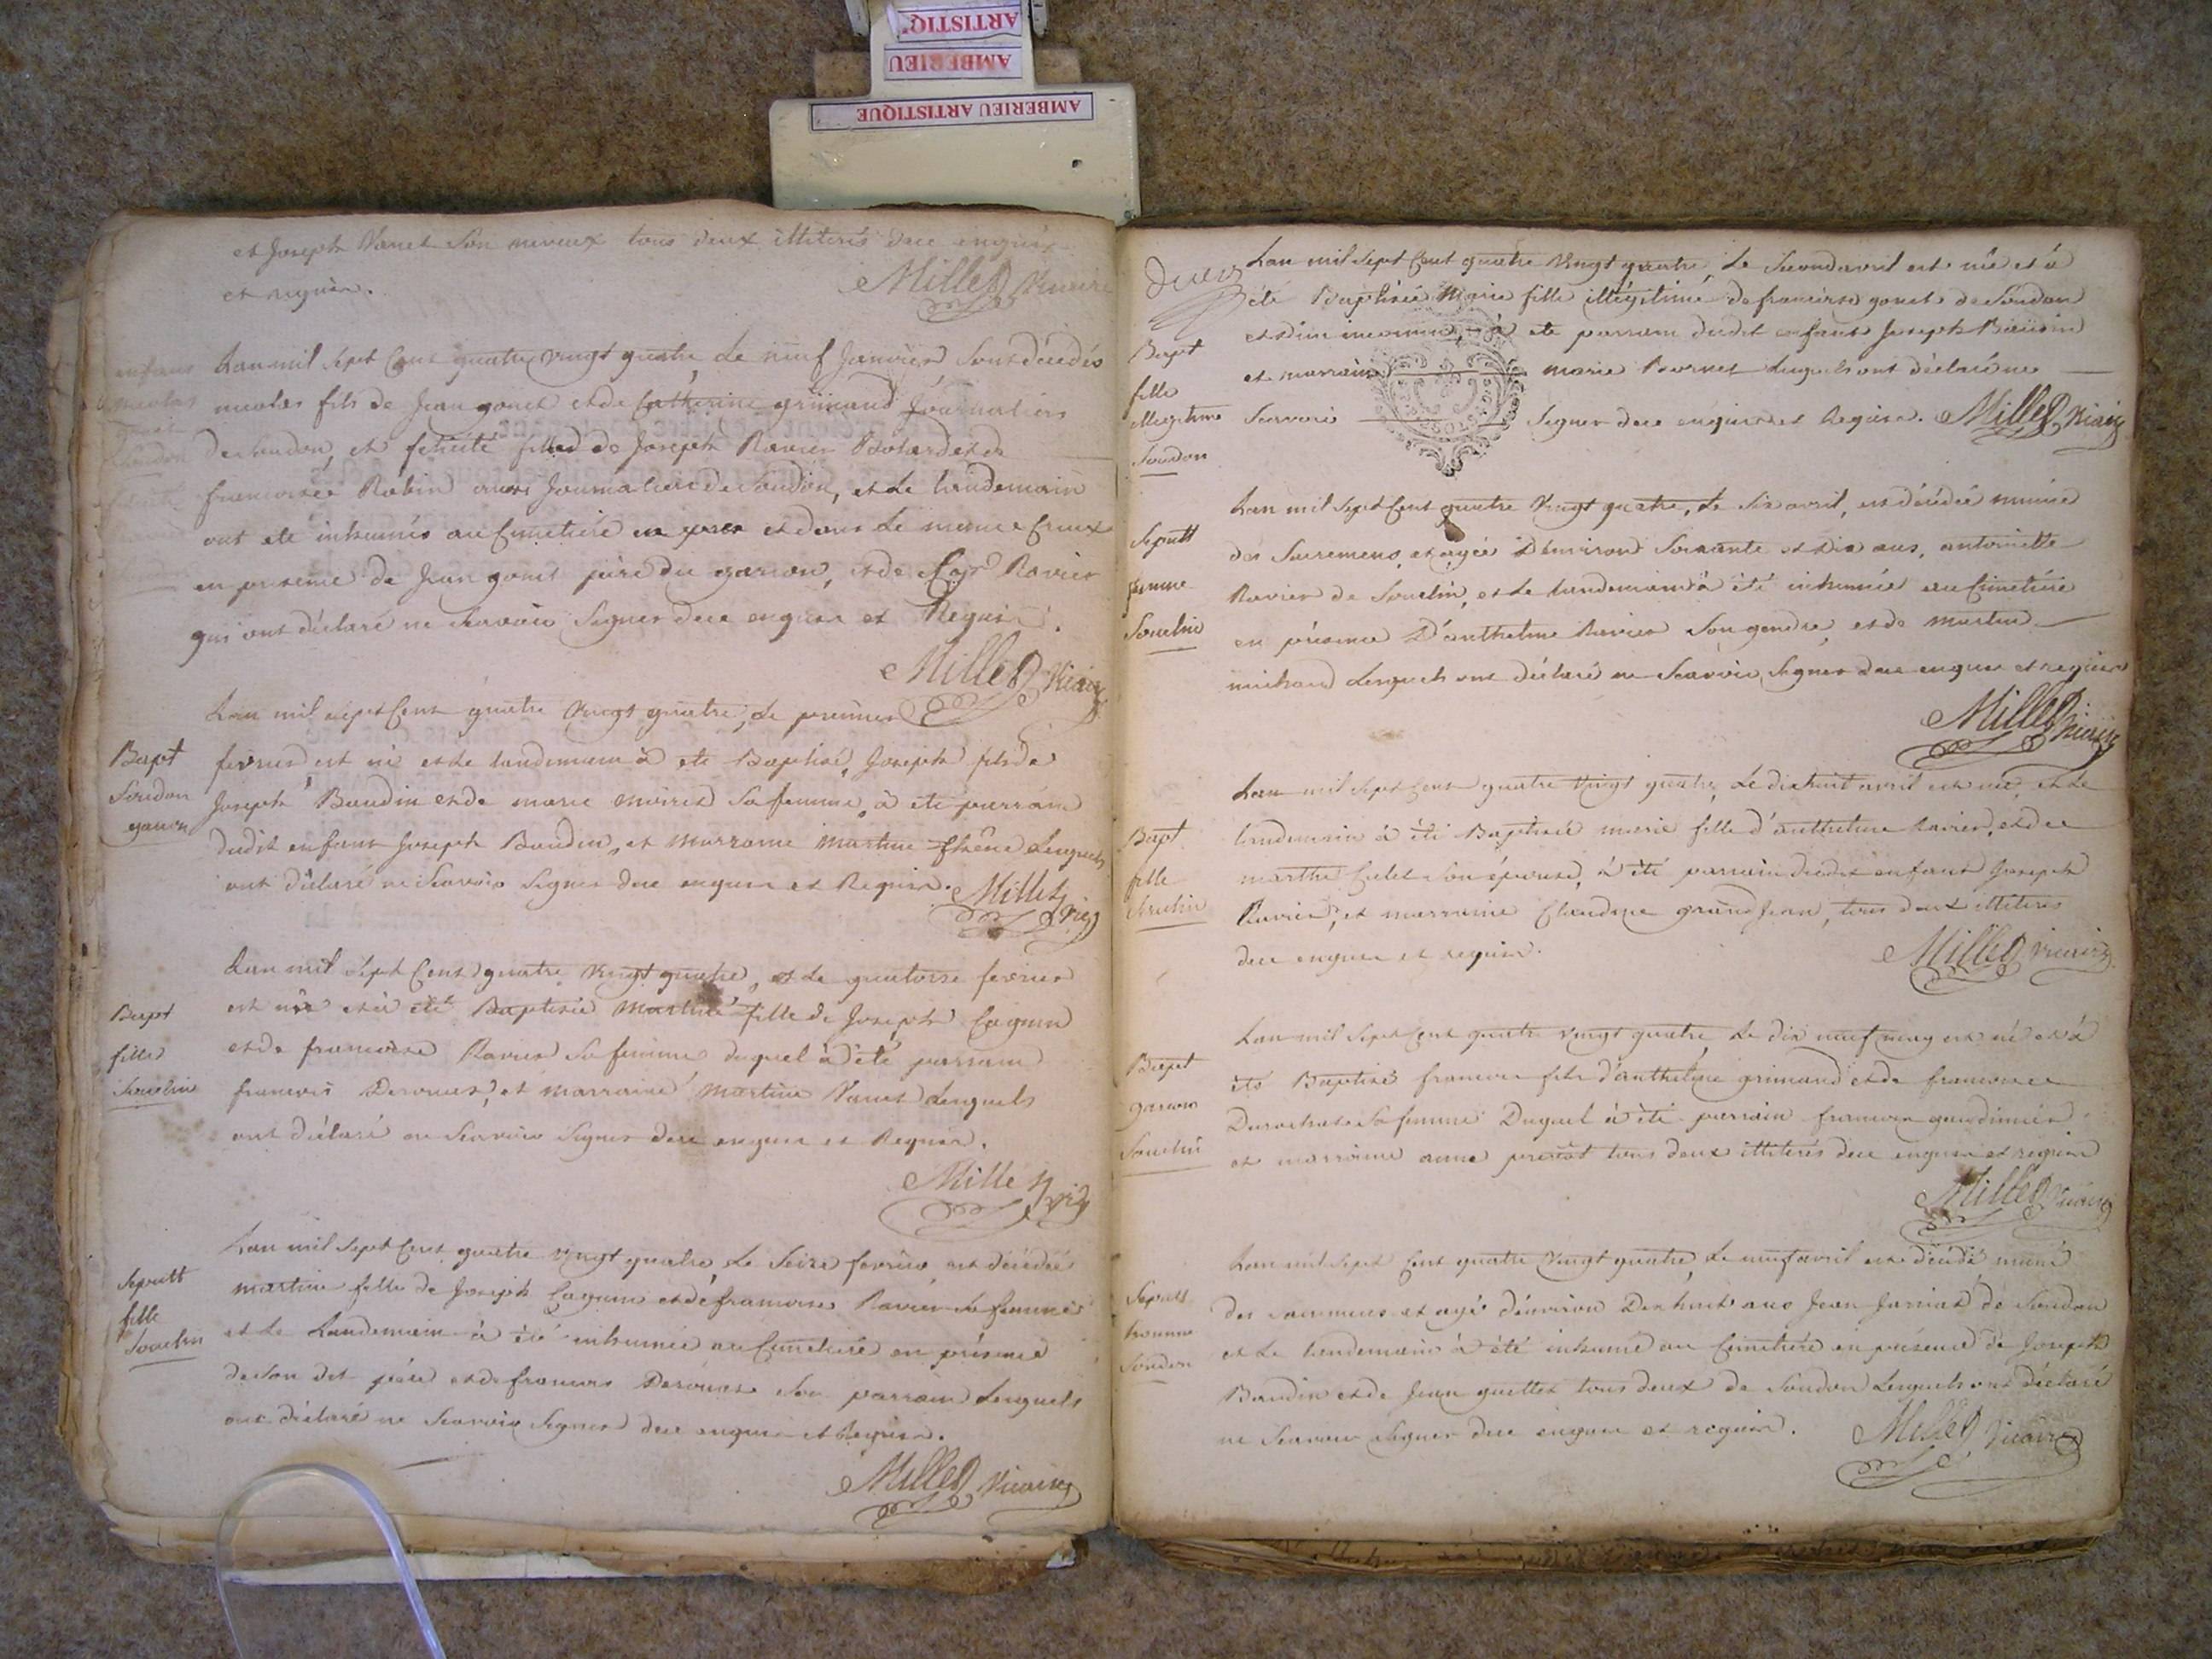 ARTISTIQ
AMBERIEU
AMBERIEU ARTISTIQUE
et Joseph Vanet Son neveux tous deux illiterés dece enquis
et requis.
Millet Vicaire
enfans
nicolas
Lan mil sept Cent quatre vingt quatre, Le neuf Janvier, Sont décedés
nicolas fils de Jean gonet et de Catherine grimaud Journaliers
de Soudon, et felicité fille de Joseph Ravier et de
francoise Robin aussi Journaliers de Soudon, et Le landemain
ont eté inhumés au Cimetière et dans Le meme Creux
en presence de Jean gonet père du garcon, et de Ravier
qui ont déclaré ne Scavoir Signer dece enquis et Requis.
Millet Vicaire
Bapt
Soudon
garcon
Lan mil sept Cent quatre vingt quatre, Le premier
fevrier est né et Le landemain à eté Baptisé, Joseph fils de
Joseph Baudin et de marie Sa femme, à eté parrain
dudit enfant Joseph Baudin, et marraine martine Lesquels
ont déclaré ne Scavoir Signer dece enquis et Requis.
Millet Vic
Bapt
fille
Souclin
Lan mil Sept Cent quatre vingt quatre, et Le quatorze fevrier
est née et à eté Baptisée Martine fille de Joseph Cagnin
et de francoise Ravier Sa femme duquel à eté parrain
francois Derouet, et marraine Martine Vanet Lesquels
ont déclaré ne Scavoir Signer dece enquis et Requis.
Millet Vic
Sepult
fille
Souclin
Lan mil Sept Cent quatre vingt quatre, Le Seize fevrier, est décédée
martine fille de Joseph Cagnin et de francoise Ravier Sa femme
et Le Landemain à été inhumée au Cimetiere en présence
de Son dit père et de francois Son parrain Lesquels
ont déclaré ne Scavoir Signer dece enquis et Requis.
Millet Vicaire
Bapt
fille
illegitime
Soudon
Lan mil Sept Cent quatre Vingt quatre, Le Second avril est née et à
été Baptisée Marie fille illégitime de francoise gonet de Soudon
et d'un inconnu, à eté parrain dudit enfant Joseph Baudin
et marraine marie Lesquels ont déclaré ne
Scavoir Signer dece enquis et Requis. Millet Vicaire
Sepult
femme
Souclin
Lan mil Sept Cent quatre Vingt quatre, Le Six avril, est décédée munie
des Sacremens, et agée D'environ Soixante et Dix ans, antoinette
Ravier de Souclin, et Le Landemain à été inhumée au Cimetière
en présence D'anthelme Ravier Son gendre, et de martin
michaud Lesquels ont déclaré ne Scavoir Signer dece enquis et requis
Millet Vicaire
Bapt
fille
Souclin
Lan mil Sept Cent quatre Vingt quatre, Le dixhuit avril est née, et Le
landemain à été Baptisée marie fille d'anthelme Ravier, et de
marthe Son épouse, à été parrain dudit enfant Joseph
Ravier, et marraine Claudine grandJean, tous deux illiteres
dece enquis et requis.
Millet Vicaire
Bapt
garcon
Souclin
Lan mil Sept Cent quatre Vingt quatre Le dix neuf may est né et à
été Baptisé francois fils d'anthelme grimaud et de francoise
Sa femme Duquel à été parrain francois
et marraine anne tous deux illiterés dece enquis et requis
Millet Vicaire
Sepult
homme
Soudon
Lan mil Sept Cent quatre Vingt quatre, Le neuf avril est décédé muni
des sacremens et agé d'environ Dix huit ans Jean de Soudon
et Le landemain à été inhumé au Cimetière en présence de Joseph
Baudin et de Jean tous deux de Soudon Lesquels ont déclaré
ne Scavoir Signer dece enquis et requis.
Millet Vicaire